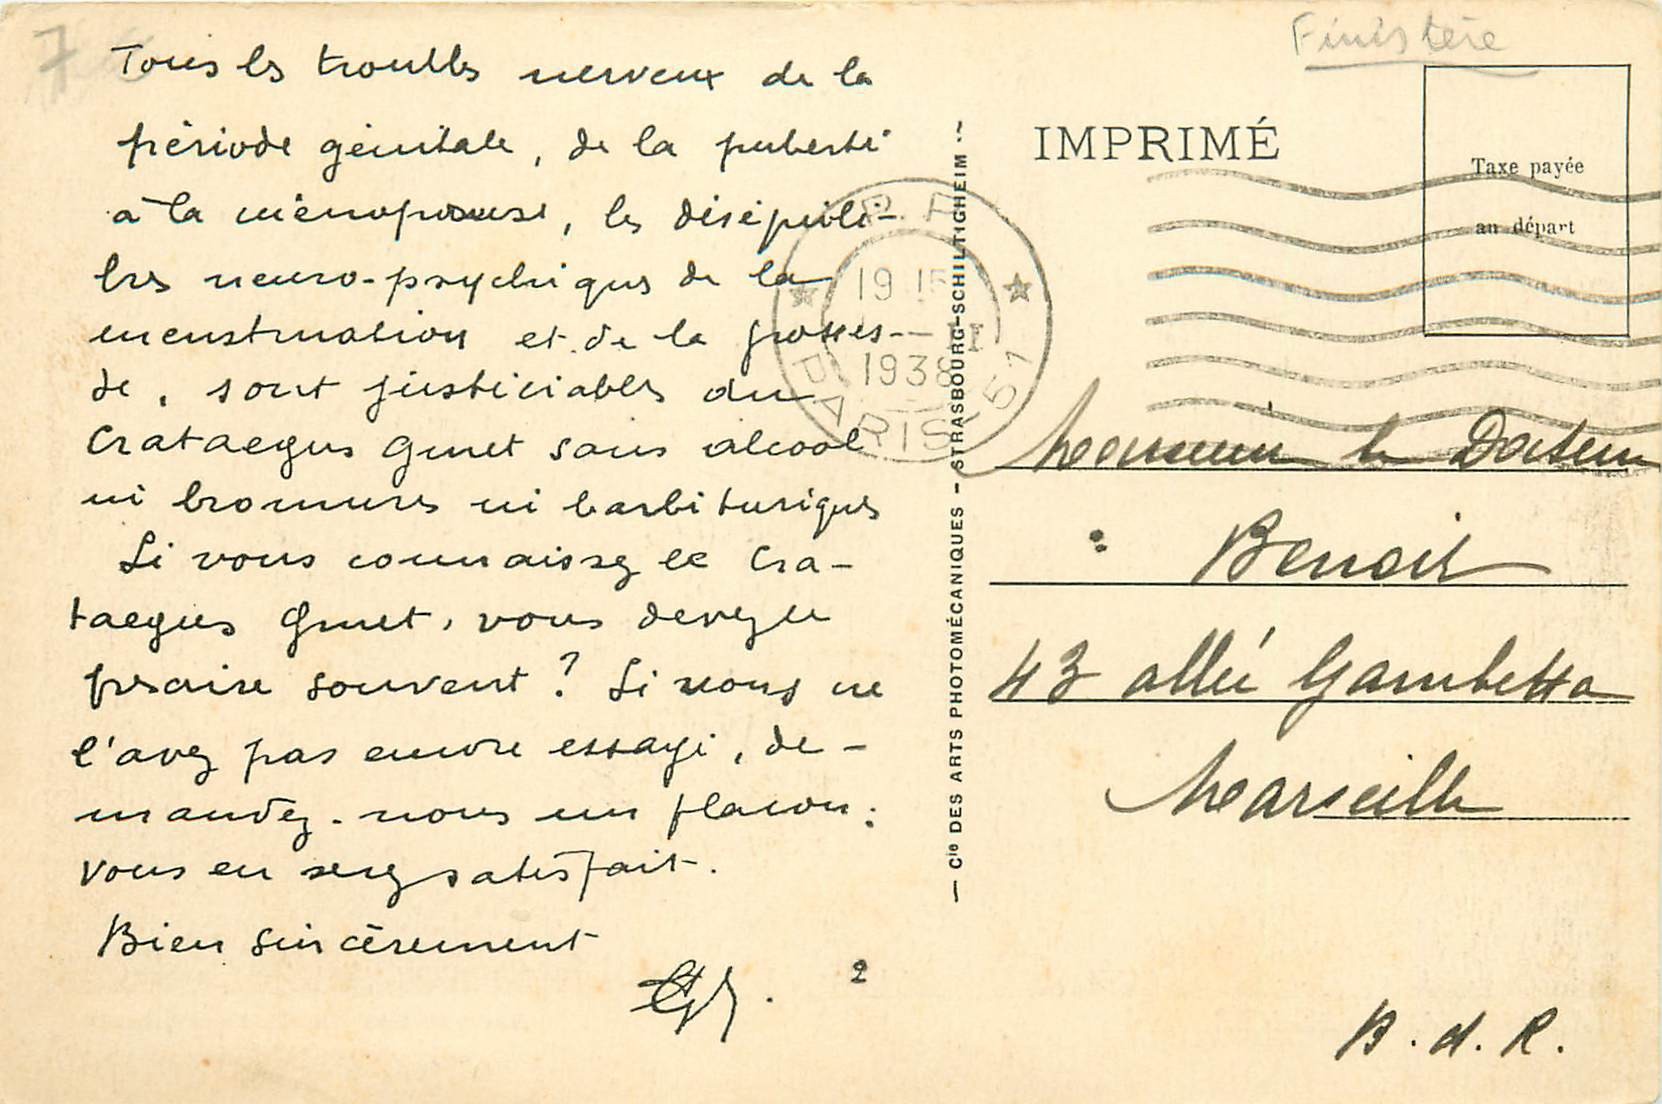 7
Tous les troubles nerveux de la
période génitale, de la puberté
à la ménopause, les déséquili-
bres neuro-psychiques de la
menstruation et de la grosses-
se, sont justiciables du
Crataegus Gmet sans alcool
ni bromures ni barbituriques
Si vous connaissez le Cra-
taegus Gmet, vous devez le
prescrire souvent ? Si vous ne
l'avez pas encore essayé, de-
mandez-nous un flacon :
vous en serez satisfait.
Bien sincèrement
2
— Cie DES ARTS PHOTOMÉCANIQUES - STRASBOURG-SCHILTIGHEIM —
Finistère
IMPRIMÉ
Taxe payée
au départ
R.P.
19 15
1938
PARIS 51
Monsieur le Docteur
Benoit
43 allée Gambetta
Marseille
B. d. R.